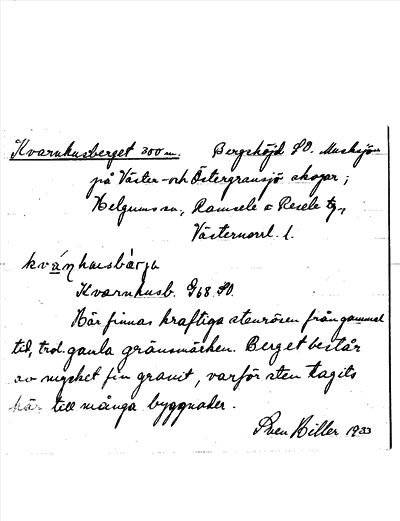 Kvarnhusberget 300 m. Bergshöjd SO. Musksjön
på Väster- och Östergransjö skogar;
Helgums sn, Ramsele o Resele tg,
Västernorrl. l.
Kvarnhusb. G68 SO.
Här finnas kraftiga stenrösen från gammal
tid, trol. gamla gränsmärken. Berget består
av mycket fin granit, varför sten tagits
här till många byggnader.
Sven Hiller 1933